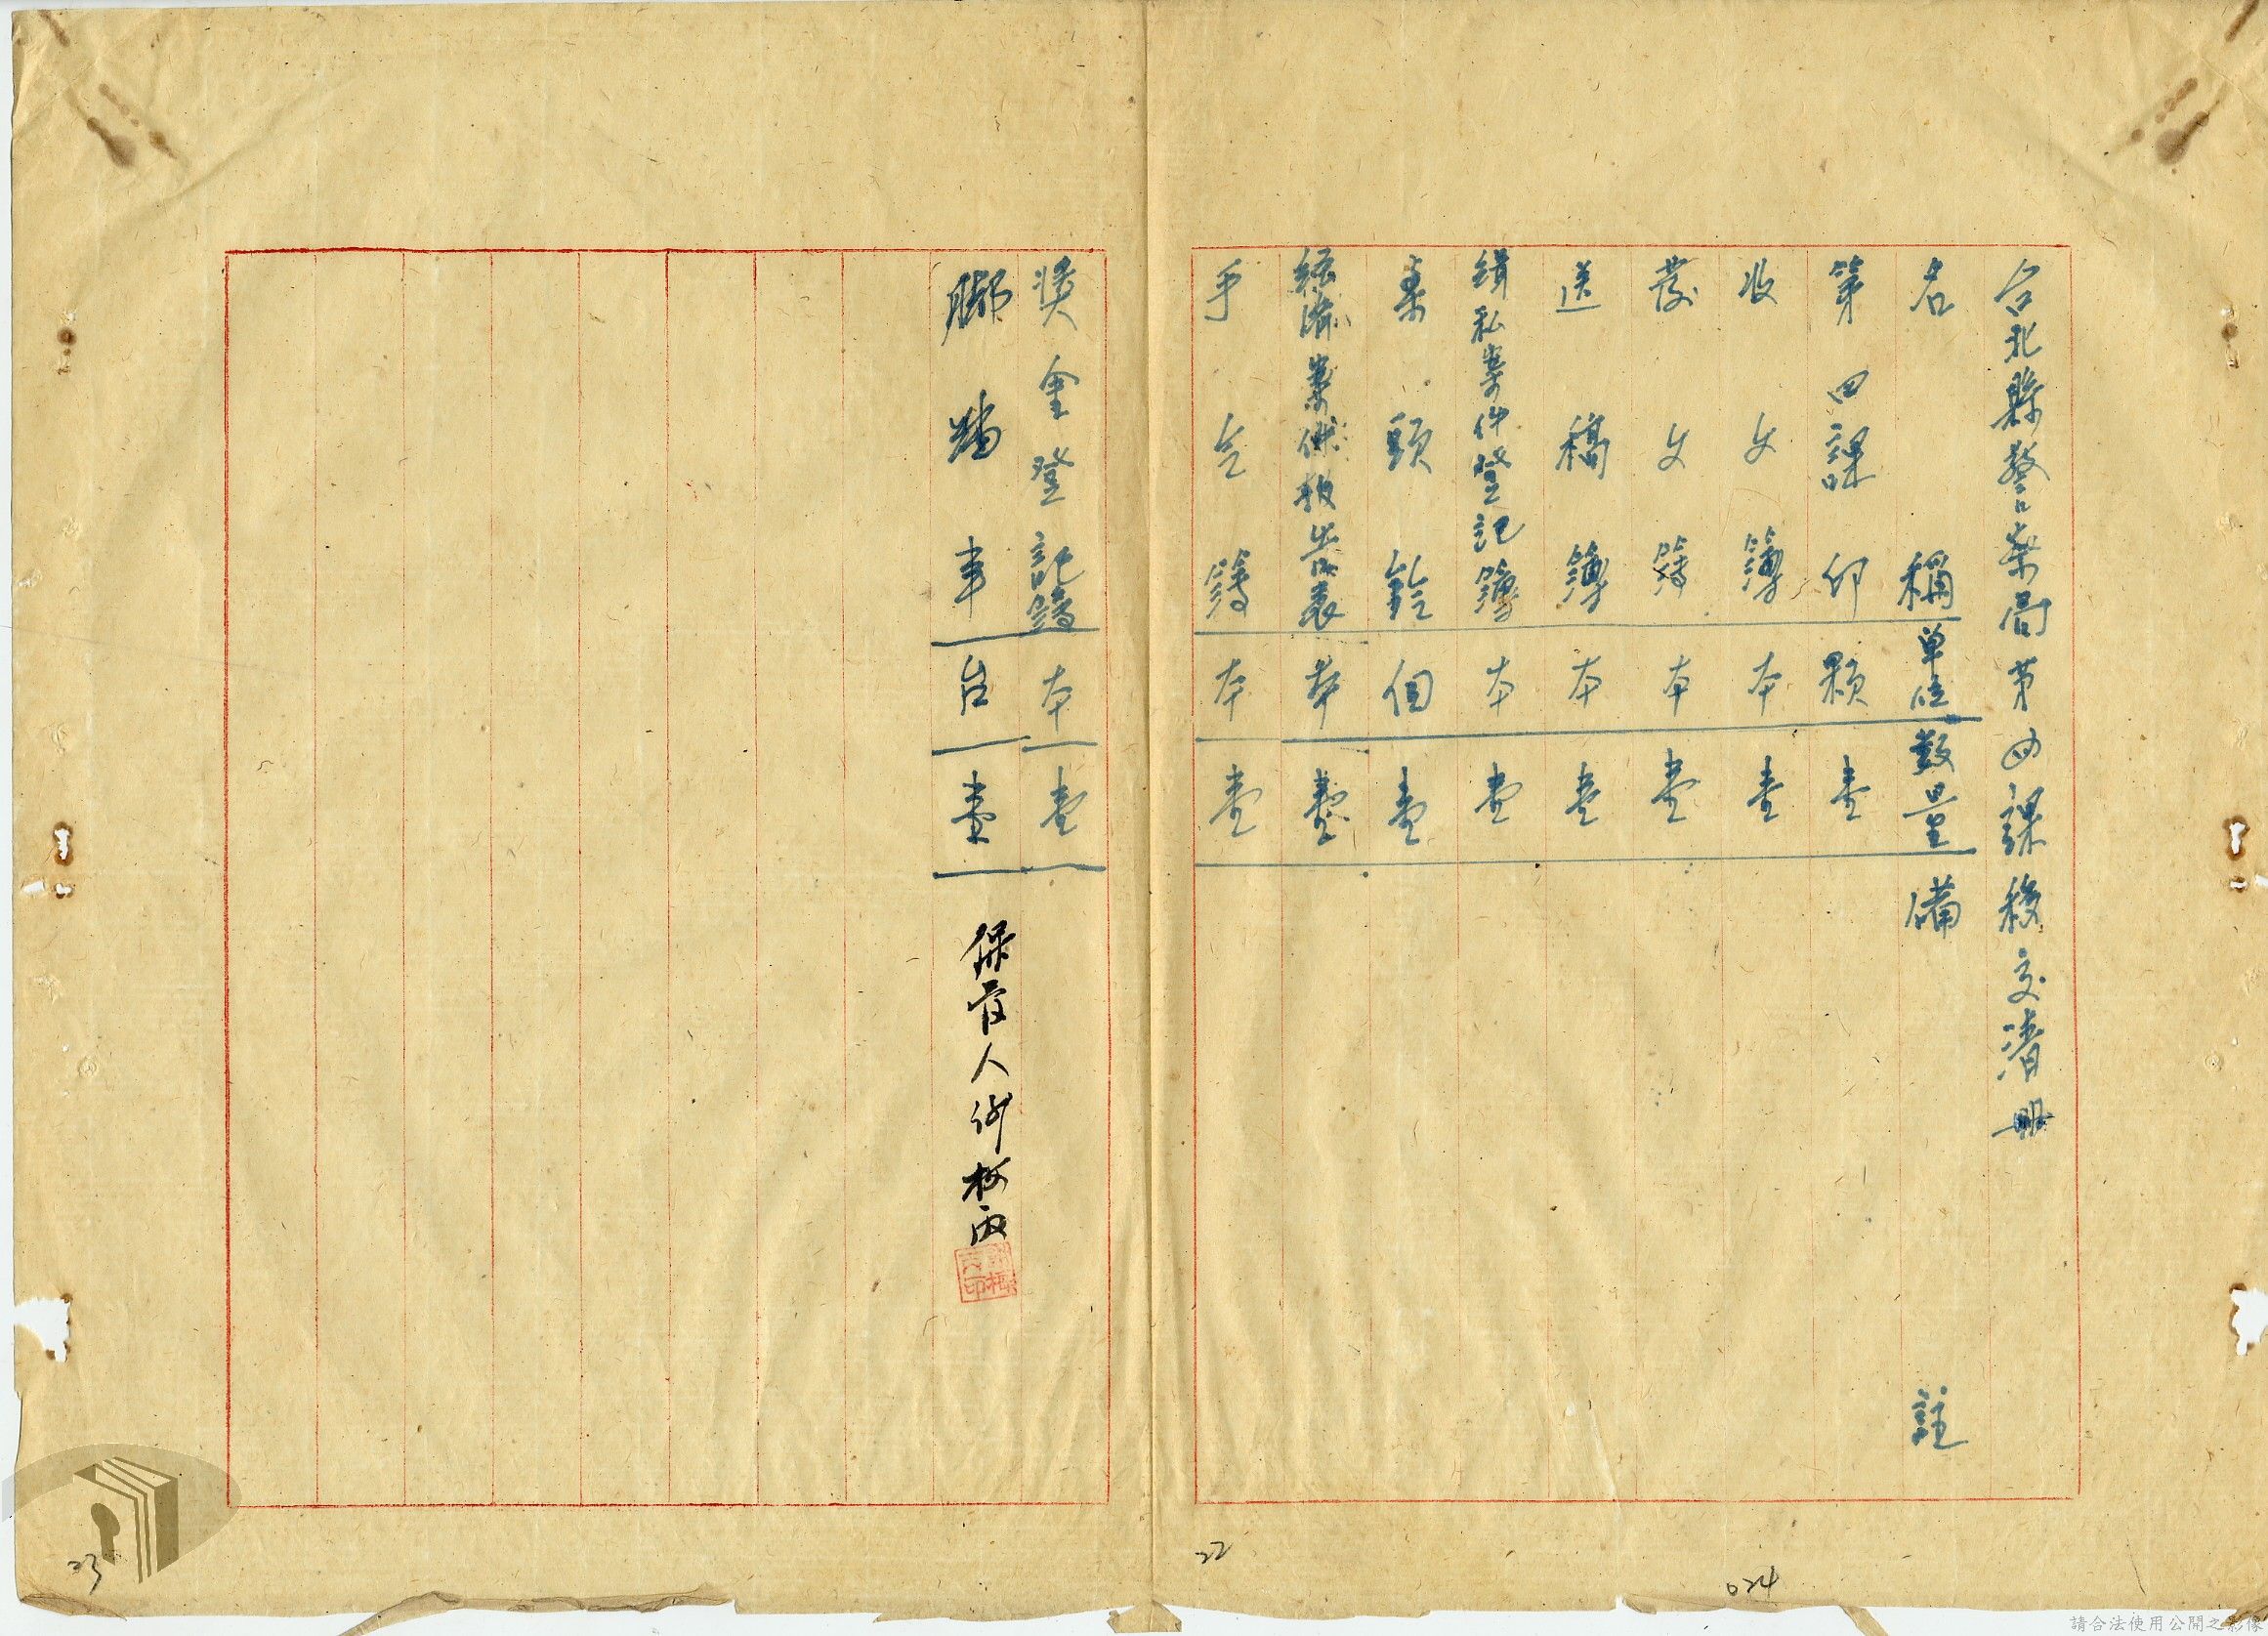 台北縣警察局第四課移交清冊
名稱 單位 數量 備註
第四課印 顆 壹
收文簿 本 壹
發文簿 本 壹
送稿簿 本 壹
緝私案件登記簿 本 壹
桌頭鈴 個 壹
經濟業佅報告表 本 壹
手气簿 本 壹
獎金登記簿 本 壹
腳踏車 台 壹 保管人
22
024
23
請合法使用公開之影像